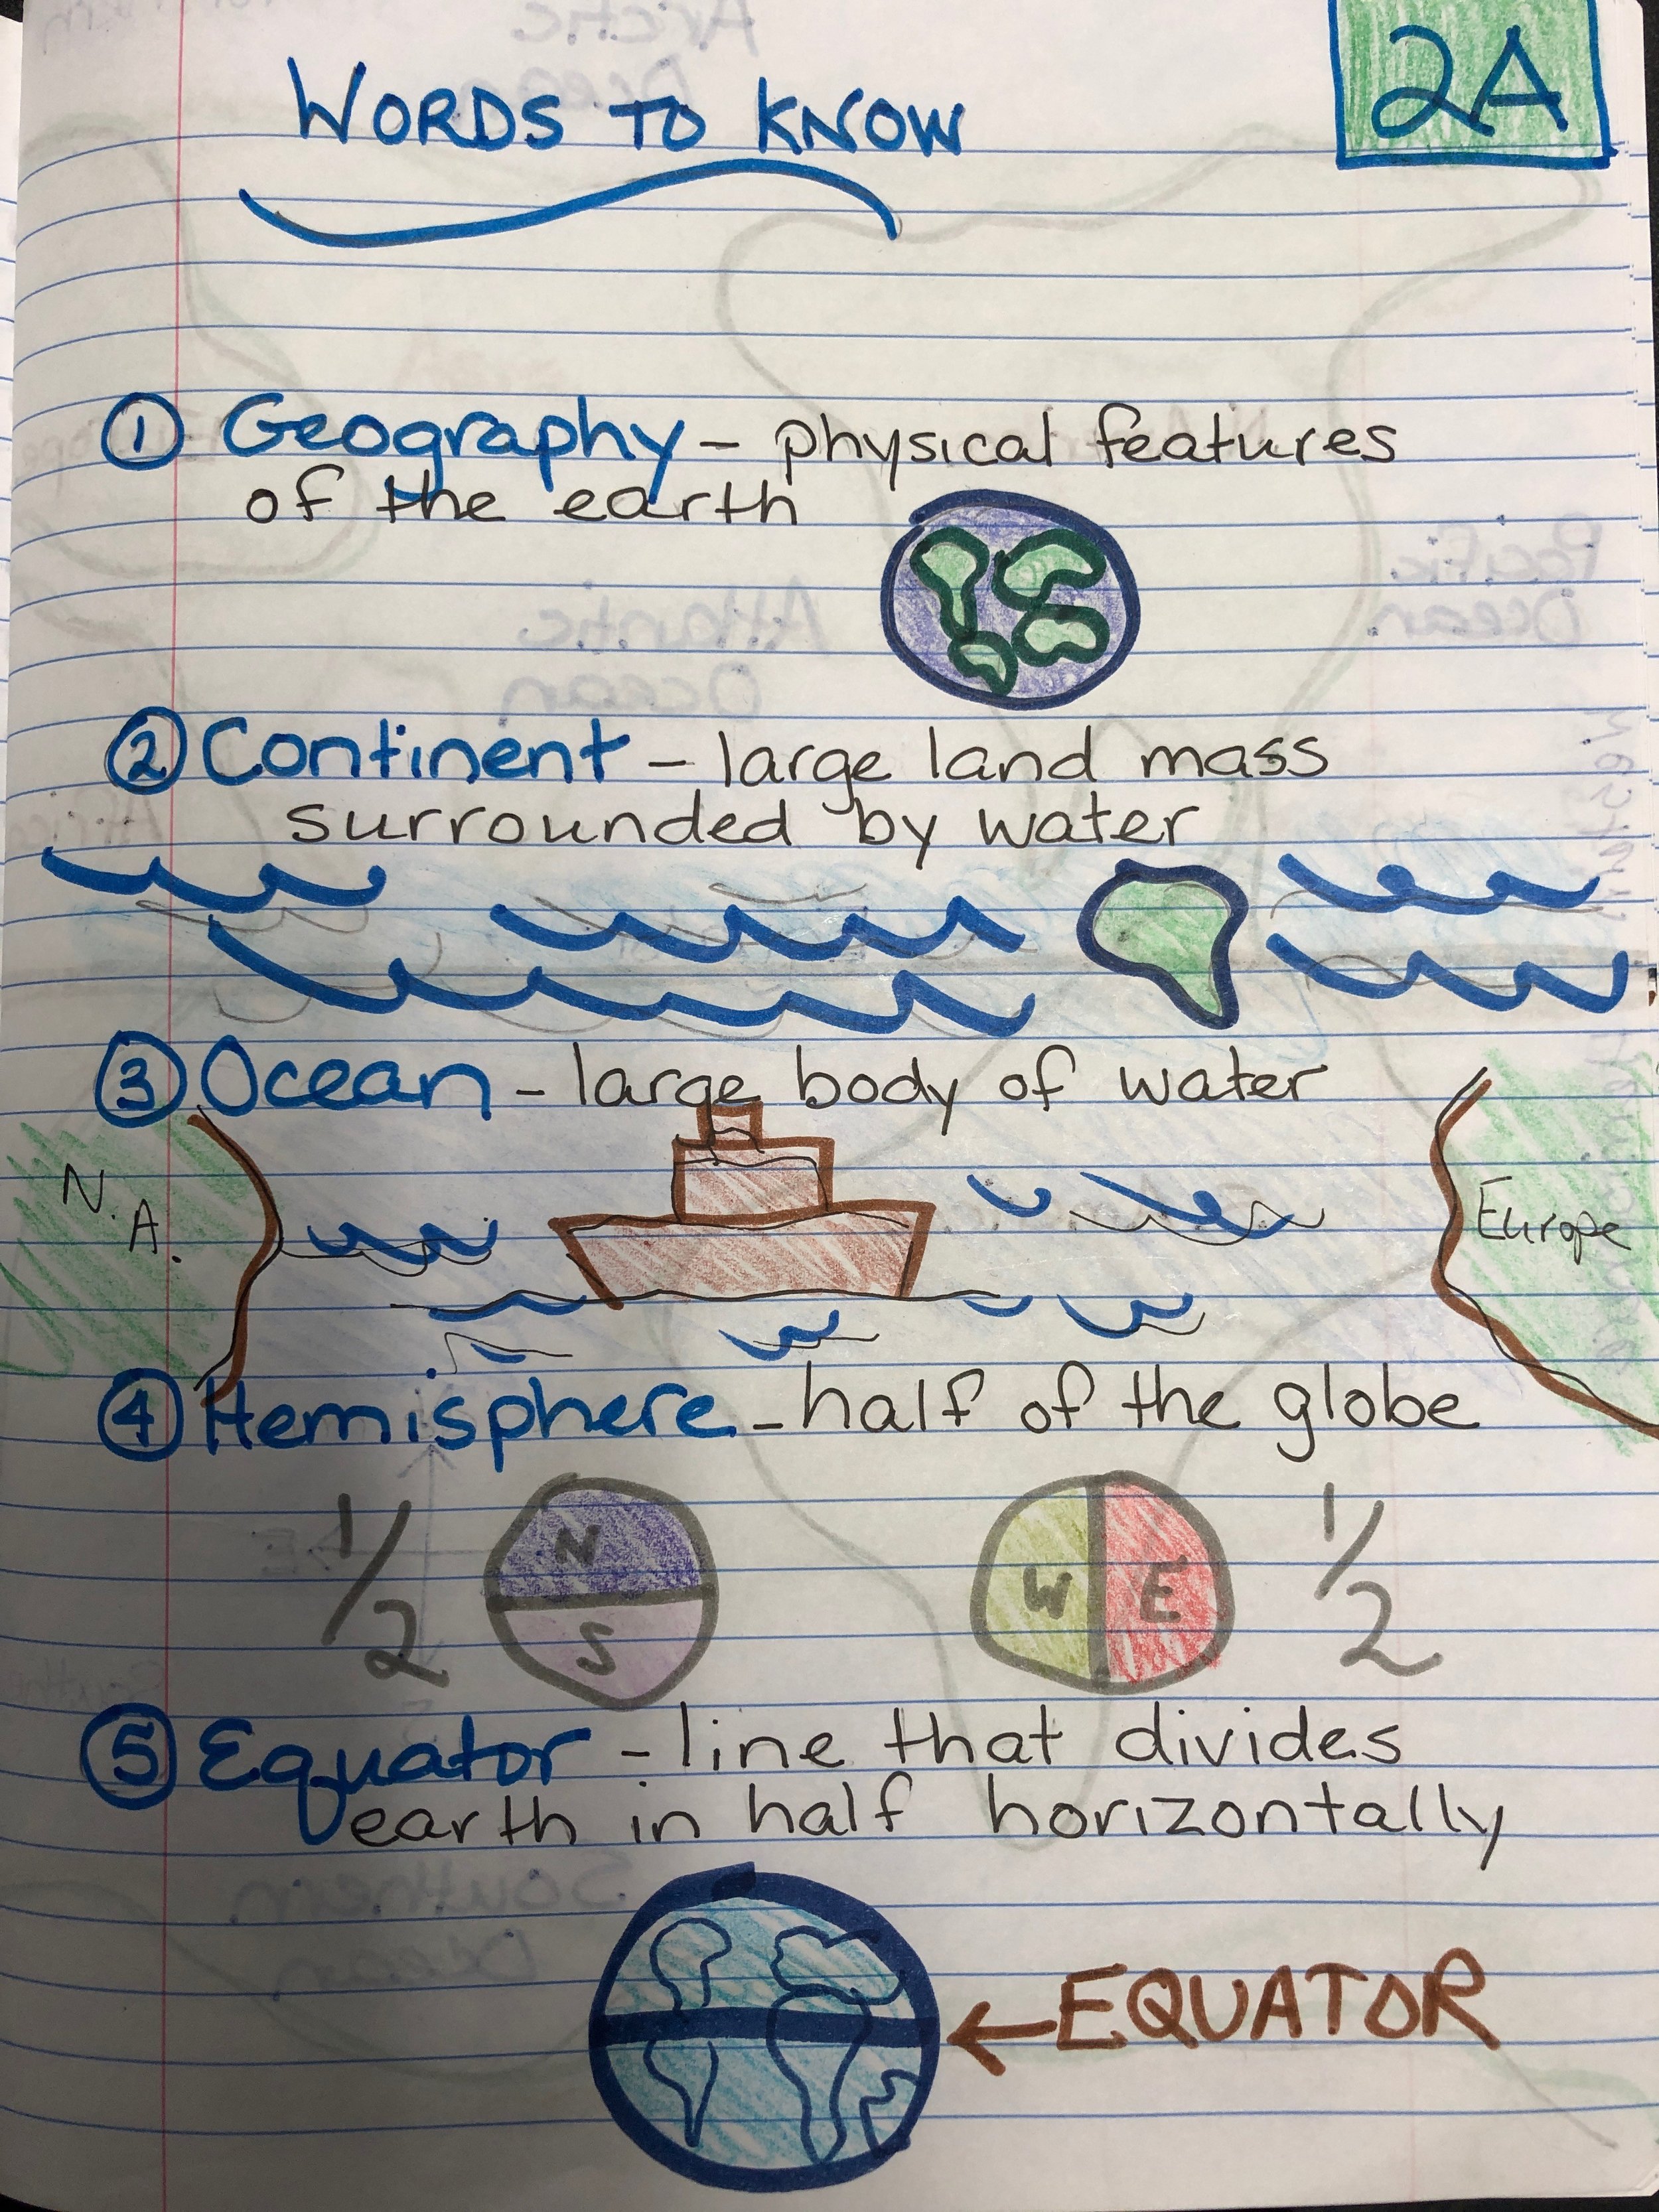 2A
WORDS TO KNOW
① Geography – physical features
of the earth
② Continent – large land mass
surrounded by water
③ Ocean – large body of water
N.A.
Europe
④ Hemisphere – half of the globe
1/2 N W E 1/2
S
⑤ Equator – line that divides
earth in half horizontally
← EQUATOR